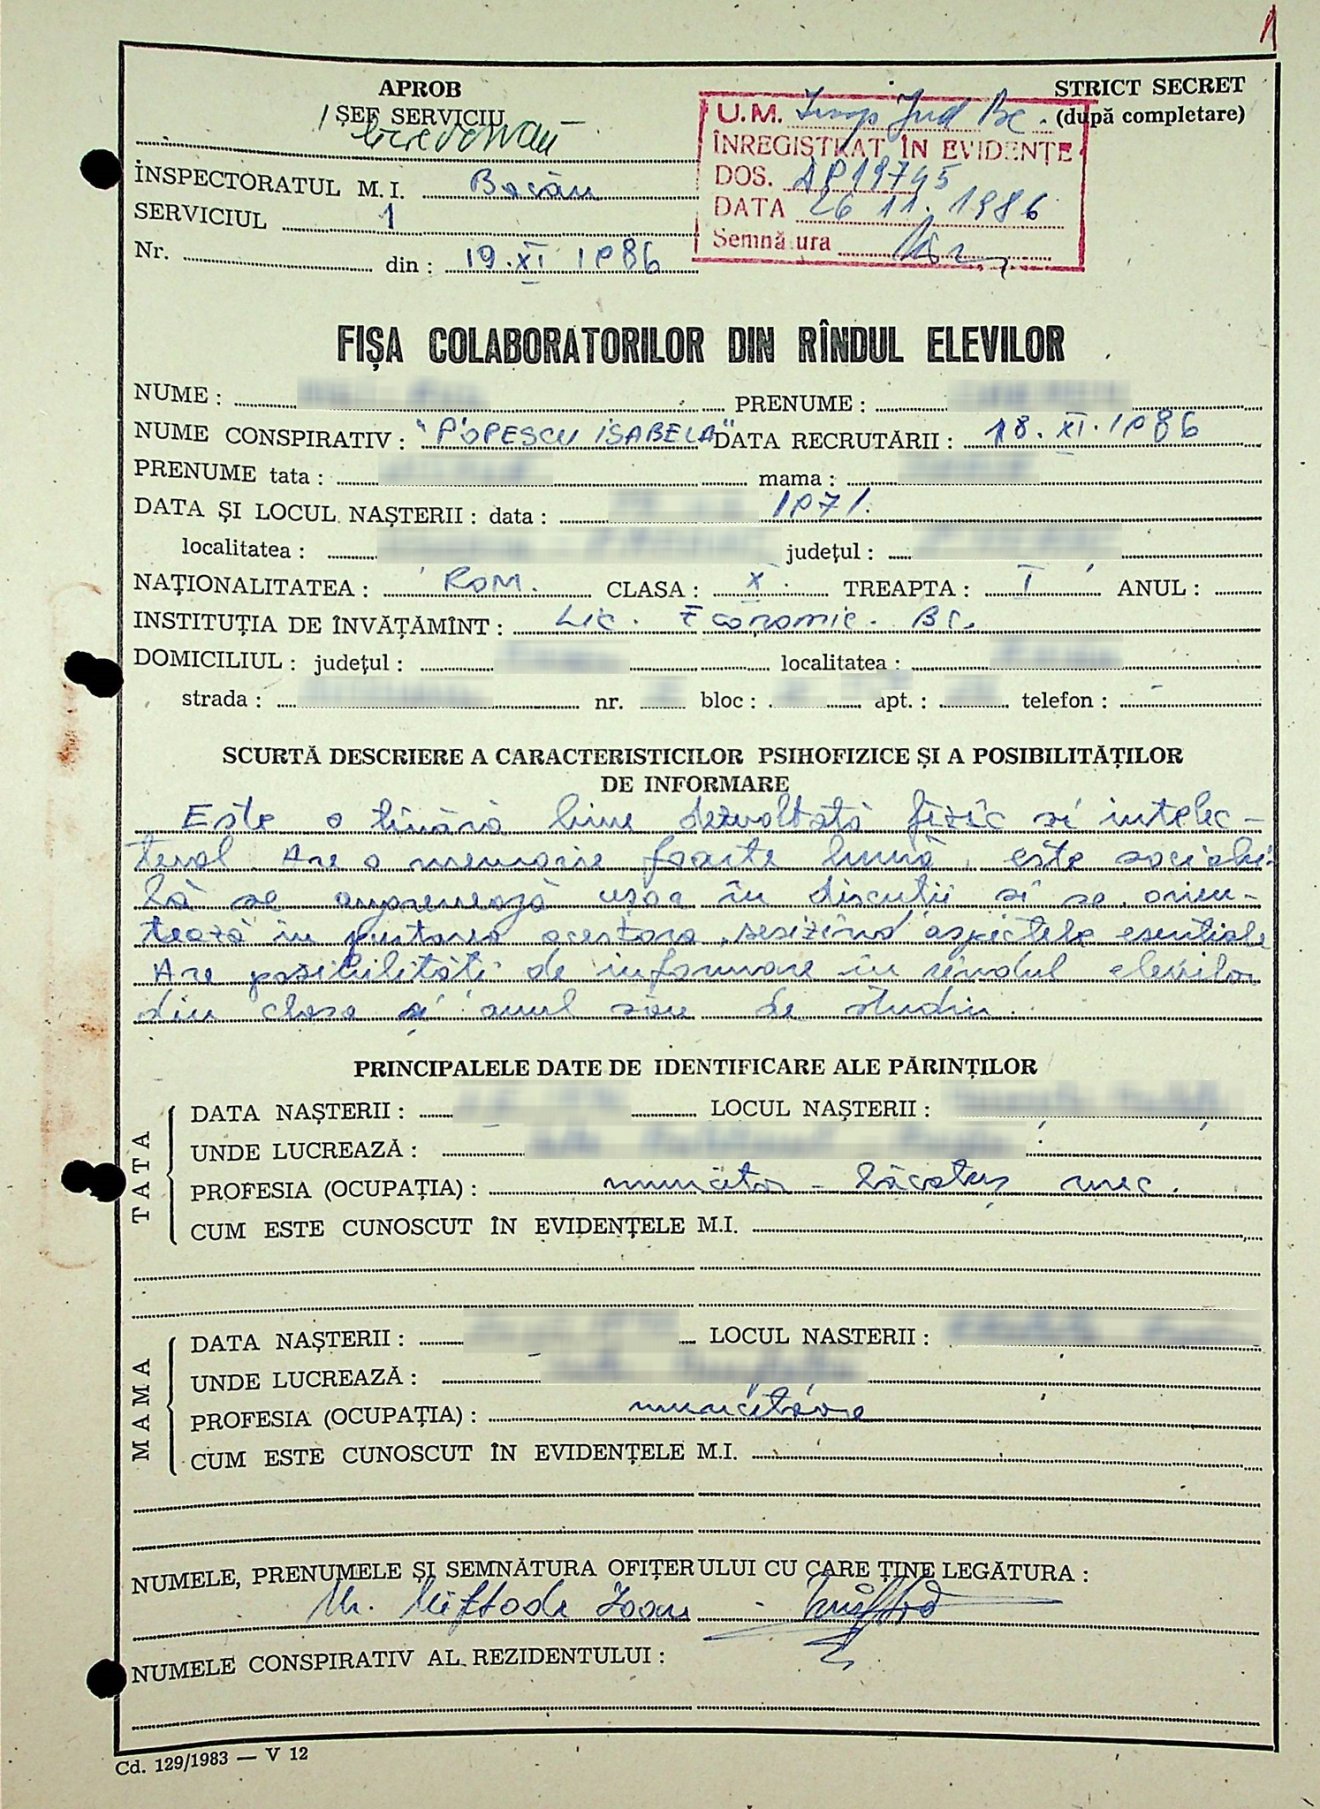 1
APROB
STRICT SECRET
ȘEF SERVICIU
(după completare)
U.M. Insp Jud Bc.
ÎNREGISTRAT ÎN EVIDENȚE
DOS. AP19745
DATA 26 11. 1986
Semnătura
INSPECTORATUL M. I. Bacău
SERVICIUL 1
Nr. din : 19.XI 1986
FIȘA COLABORATORILOR DIN RÎNDUL ELEVILOR
NUME : PRENUME :
NUME CONSPIRATIV : "POPESCU ISABELA" DATA RECRUTĂRII : 18. XI. 1986
PRENUME tata : mama :
DATA ȘI LOCUL NAȘTERII : data : 1971.
localitatea : județul :
NAȚIONALITATEA : ROM. CLASA : X. TREAPTA : I ANUL :
INSTITUȚIA DE ÎNVĂȚĂMÎNT : Lic. Economic. BC.
DOMICILIUL : județul : localitatea :
strada : nr. bloc : apt. : telefon : -
SCURTĂ DESCRIERE A CARACTERISTICILOR PSIHOFIZICE ȘI A POSIBILITĂȚILOR
DE INFORMARE
Este o tînără bine dezvoltată fizic și intelec-
tual. Are o memorie foarte bună, este sociabi-
lă se angrenează ușor în discuții și se orien-
tează în purtarea acestora, sesizînd aspectele esențiale
Are posibilități de informare în rîndul elevilor
din clasa și anul său de studiu.
PRINCIPALELE DATE DE IDENTIFICARE ALE PĂRINȚILOR
TATA
DATA NAȘTERII : LOCUL NAȘTERII :
UNDE LUCREAZĂ :
PROFESIA (OCUPAȚIA) : muncitor - lăcătuș mec.
CUM ESTE CUNOSCUT ÎN EVIDENȚELE M.I.
MAMA
DATA NAȘTERII : LOCUL NASTERII :
UNDE LUCREAZĂ :
PROFESIA (OCUPAȚIA) : muncitoare
CUM ESTE CUNOSCUT ÎN EVIDENȚELE M.I.
NUMELE, PRENUMELE ȘI SEMNĂTURA OFIȚERULUI CU CARE ȚINE LEGĂTURA :
Miftode Ioan
NUMELE CONSPIRATIV AL REZIDENTULUI :
Cd. 129/1983 — V 12